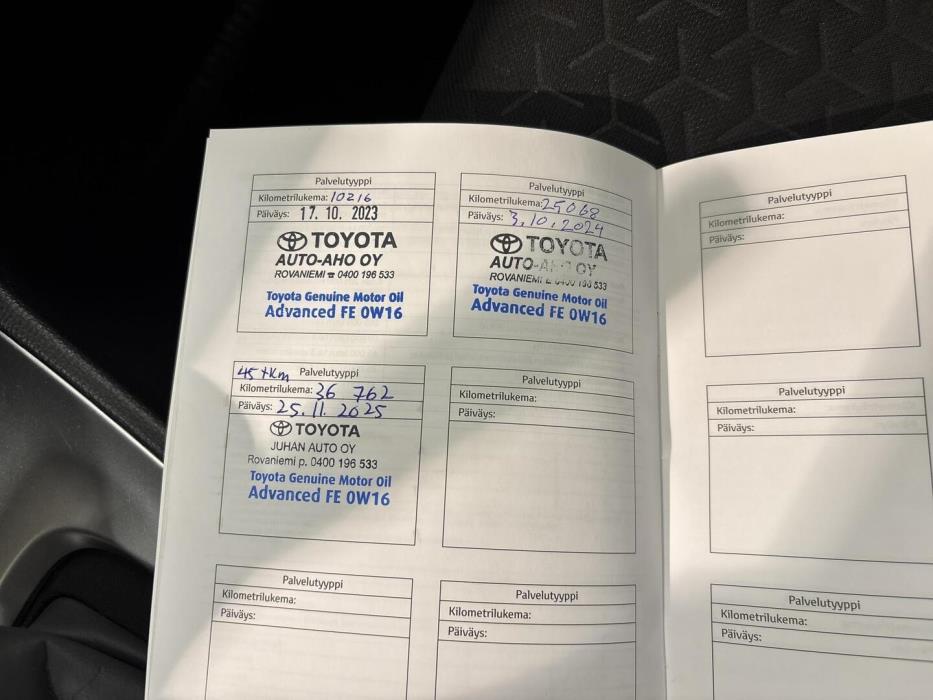 Palvelutyyppi
Kilometrilukema: 10216
Päiväys: 17. 10. 2023
TOYOTA
AUTO-AHO OY
ROVANIEMI ☎ 0400 196 533
Toyota Genuine Motor Oil
Advanced FE 0W16
Palvelutyyppi
Kilometrilukema: 25068
Päiväys: 3.10.2024
TOYOTA
AUTO-AHO OY
ROVANIEMI 0400 196 533
Toyota Genuine Motor Oil
Advanced FE 0W16
45 tkm Palvelutyyppi
Kilometrilukema: 36 762
Päiväys: 25.11.2025
TOYOTA
JUHAN AUTO OY
Rovaniemi p. 0400 196 533
Toyota Genuine Motor Oil
Advanced FE 0W16
Palvelutyyppi
Kilometrilukema:
Päiväys:
Palvelutyyppi
Kilometrilukema:
Päiväys:
Palvelutyyppi
Kilometrilukema:
Päiväys:
Palvelutyyppi
Kilometrilukema:
Päiväys:
Palvelutyyppi
Kilometrilukema:
Päiväys:
Palvelutyyppi
Kilometrilukema:
Päiväys: